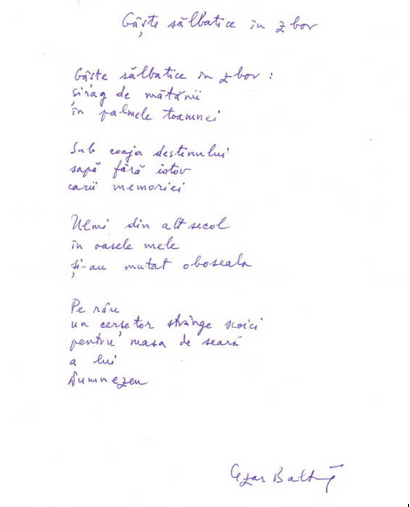 Gâște sălbatice în zbor
Gâște sălbatice în zbor:
șirag de mătănii
în palmele toamnei
Sub coaja destinului
sapă fără istov
carii memoriei
Ulmi din alt secol
în oasele mele
și-au mutat oboseala
Pe râu
un cerșetor strânge scoici
pentru masa de seară
a lui
Dumnezeu
Cezar